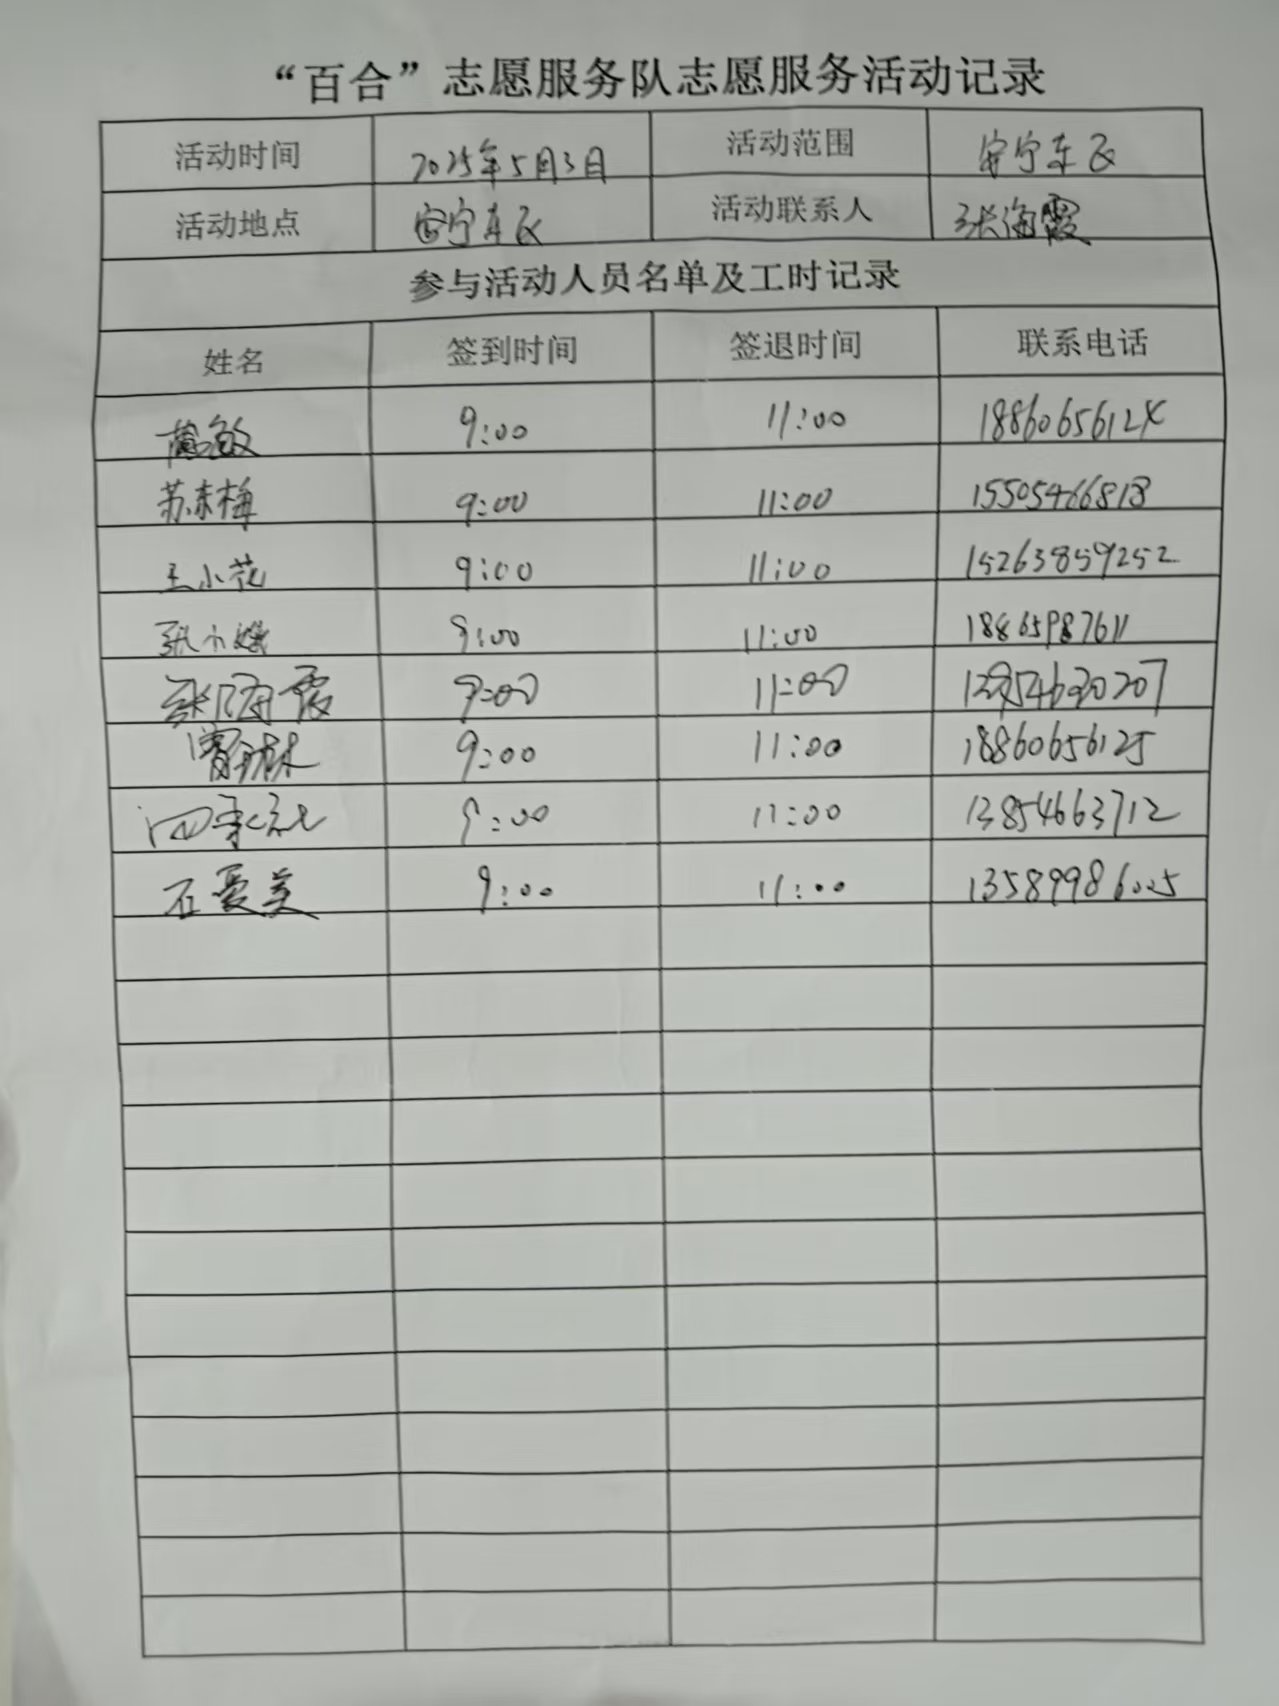 “百合”志愿服务队志愿服务活动记录
活动时间 2025年5月3日 活动范围 安宁东区
活动地点 安宁东区 活动联系人 张海霞
参与活动人员名单及工时记录
姓名 签到时间 签退时间 联系电话
敏 9:00 11:00 1886065612
苏东梅 9:00 11:00 15505466818
王小花 9:00 11:00 15263859252
张小娥 9:00 11:00 18865987611
张海霞 9:00 11:00
9:00 11:00 18860656125
9:00 11:00 13854663712
石爱美 9:00 11:00 13589986025